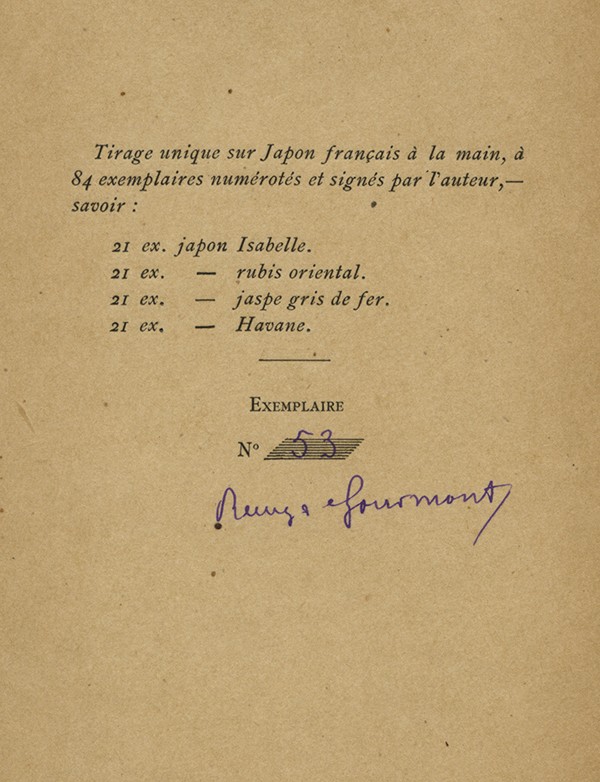 Tirage unique sur Japon français à la main, à
84 exemplaires numérotés et signés par l'auteur,—
savoir :
21 ex. japon Isabelle.
21 ex. — rubis oriental.
21 ex. — jaspe gris de fer.
21 ex. — Havane.
EXEMPLAIRE
Nº 53
Remy de Gourmont